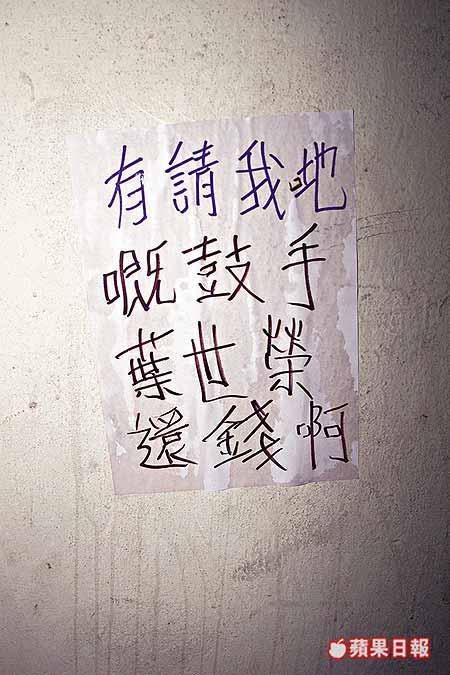 有請我哋
嘅鼓手
葉世榮
還錢啊
蘋果日報